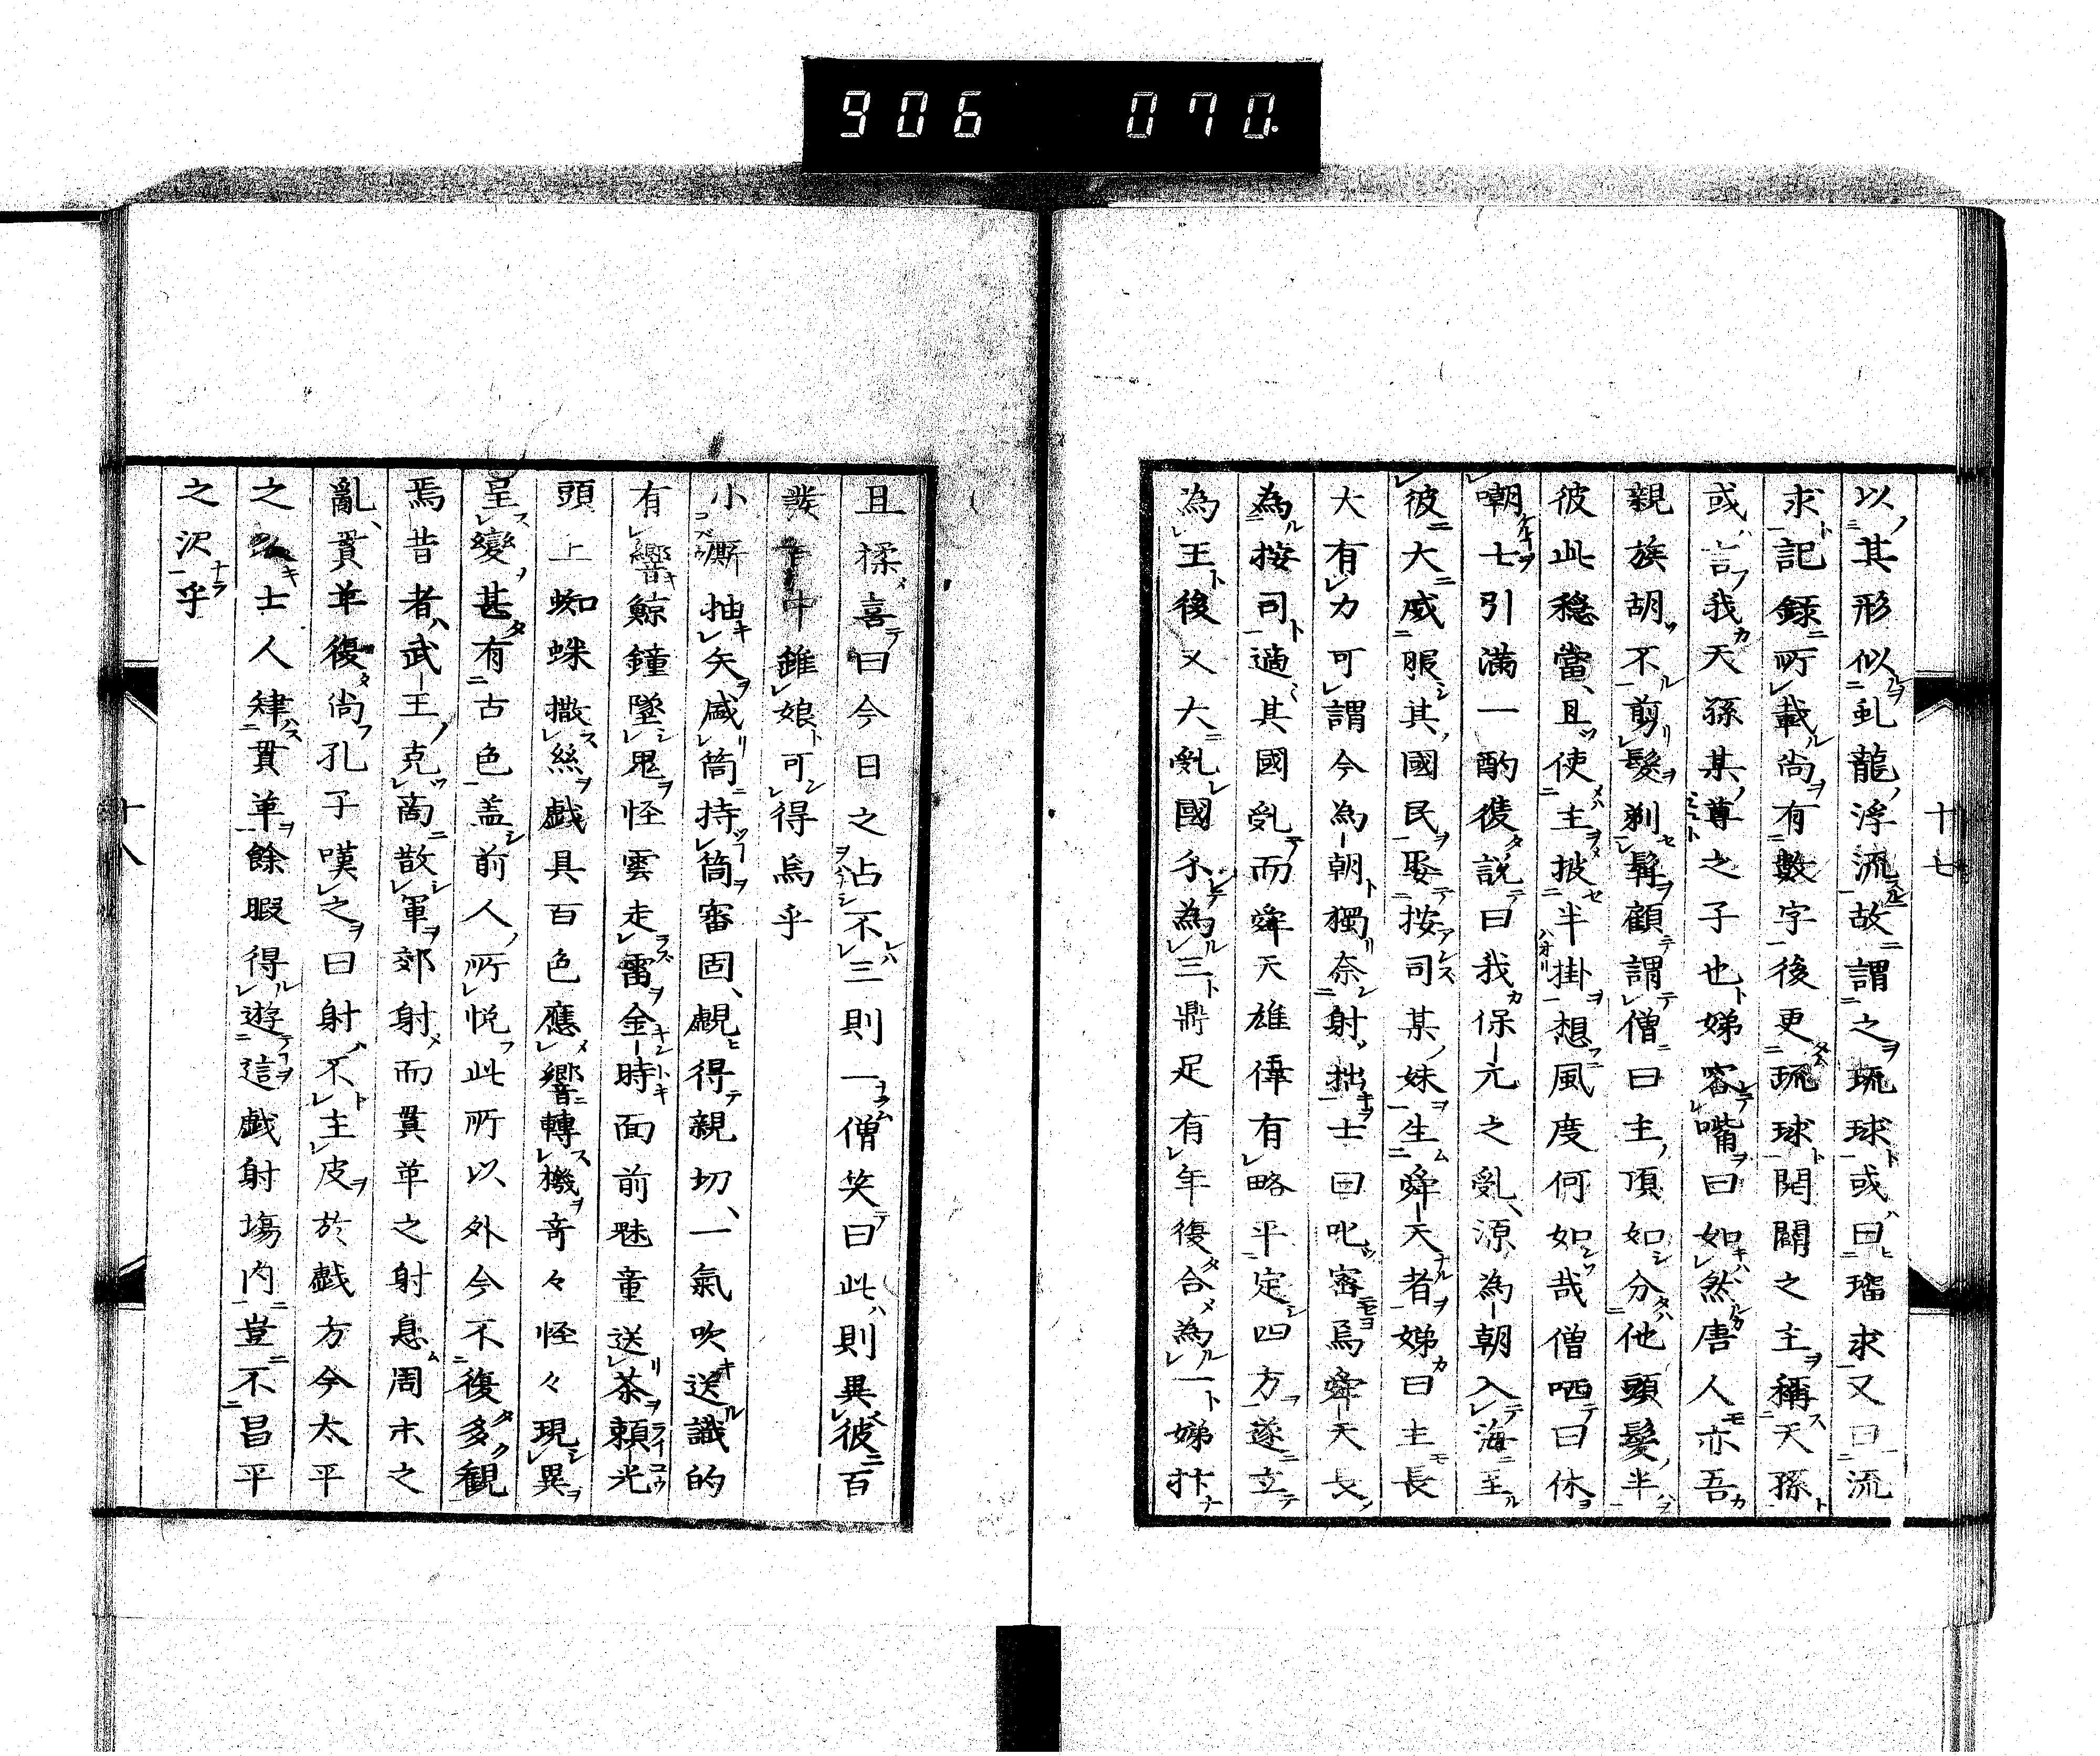 906 070.
十七
以其形似虬龍浮流故謂之琉球或曰璢求又曰流
求記録所載尚有數字後更琉球開闢之主稱天孫
或言我天孫某尊之子也娣容嘴曰如然唐人亦吾
親族胡不剪髮剃髯顧謂僧曰主頂如分他頭髮半
彼此穏當且使主披半掛想風度何如哉僧哂曰休
嘲士引満一酌復説曰我保元之亂源為朝入海至
彼大威服其國民娶按司某妹生舜天者娣曰主長
大有力可謂今為朝獨奈射拙士曰叱審焉舜天長
為按司適其國亂而舜天雄偉有略平定四方遂立
為王後又大亂國分為三鼎足有年復合為一娣抃
且揉喜曰今日之占不三則一僧笑曰此則異彼百
發百中錐娘可得焉乎
小廝抽矢咸筒持筒審固覷得親切一氣吹送識的
有響鯨鐘墜鬼怪雲走雷金時面前魅童送茶頼光
頭上蜘蛛撒絲戯具百色應響轉機奇々怪々現異
呈變甚有古色盖前人所悦此所以外今不復多觀
焉昔者武王克商散軍郊射而貫革之射息周末之
亂貫革復尚孔子嘆之曰射不主皮於戯方今太平
之士人肄貫革餘暇得遊這戯射場内豈不昌平
之沢乎
十八